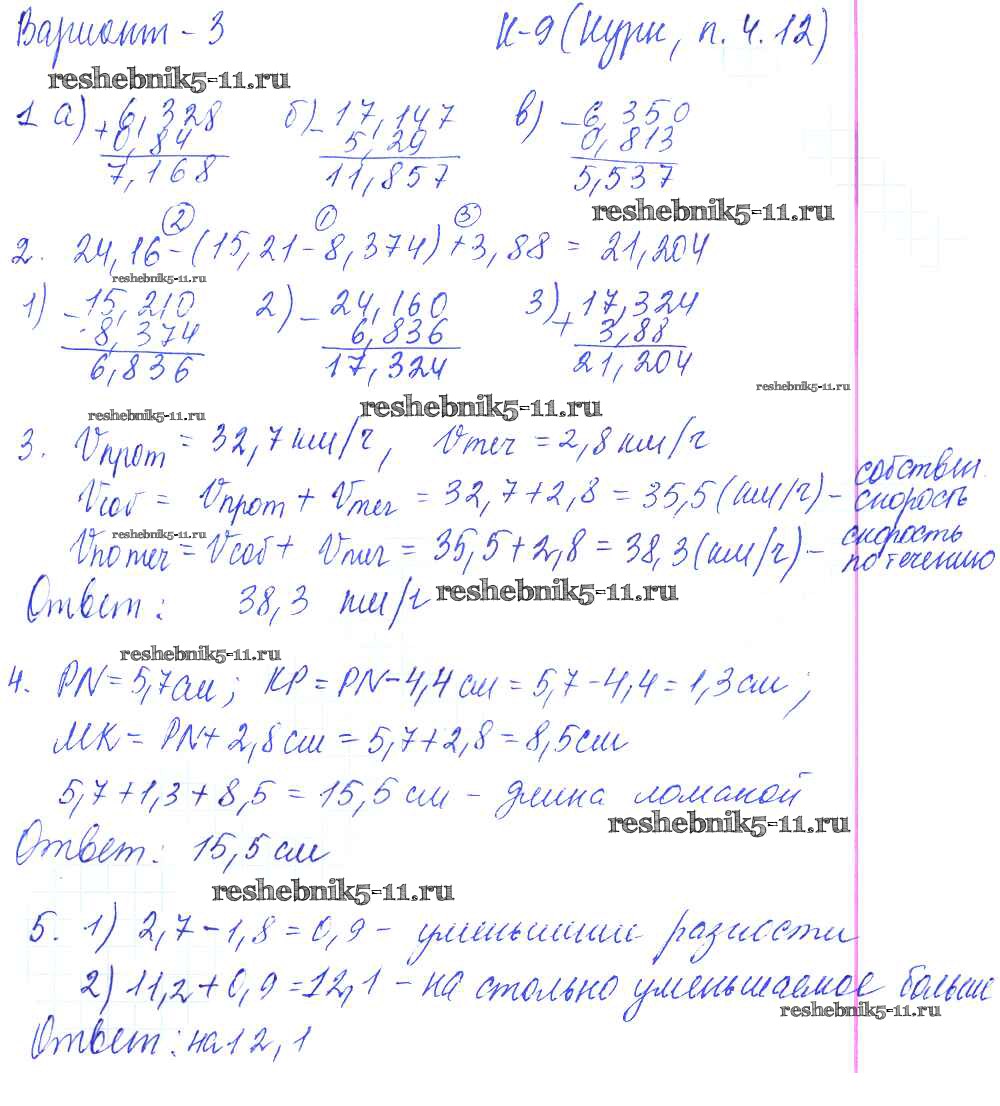 Вариант - 3 К-9 (Кури, п. 4.12)
reshebnik5-11.ru
1 а) + 6,328 б) - 17,147 в) - 6,350
0,84 5,29 0,813
7,168 11,857 5,537
reshebnik5-11.ru
2 1 3
2. 24,16 - (15,21 - 8,374) + 3,88 = 21,204
reshebnik5-11.ru
1) - 15,210 2) - 24,160 3) + 17,324
8,374 6,836 3,88
6,836 17,324 21,204
reshebnik5-11.ru
reshebnik5-11.ru reshebnik5-11.ru
3. Vпрот = 32,7 км/ч, Vтеч = 2,8 км/ч
Vсоб = Vпрот + Vтеч = 32,7 + 2,8 = 35,5 (км/ч) - собствен. скорость
reshebnik5-11.ru
Vпо теч = Vсоб + Vтеч = 35,5 + 2,8 = 38,3 (км/ч) - скорость по течению
Ответ: 38,3 км/ч
reshebnik5-11.ru
reshebnik5-11.ru
4. PN = 5,7 см; KP = PN - 4,4 см = 5,7 - 4,4 = 1,3 см;
MK = PN + 2,8 см = 5,7 + 2,8 = 8,5 см
5,7 + 1,3 + 8,5 = 15,5 см - длина ломаной
reshebnik5-11.ru
Ответ: 15,5 см
reshebnik5-11.ru
5. 1) 2,7 - 1,8 = 0,9 - уменьшение разности
2) 11,2 + 0,9 = 12,1 - на столько уменьшаемое больше
reshebnik5-11.ru
Ответ: на 12,1